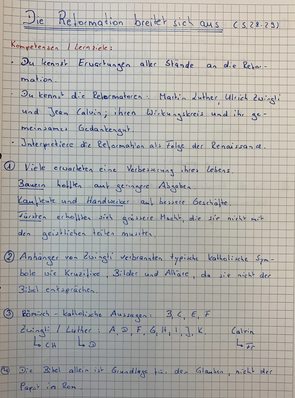 Die Reformation breitet sich aus (S. 28-29)
Kompetenzen / Lernziele:
- Du kennst Erwartungen aller Stände an die Refor-
mation.
- Du kennst die Reformatoren: Martin Luther, Ulrich Zwingli
und Jean Calvin, ihren Wirkungskreis und ihr ge-
meinsames Gedankengut
- Interpretiere die Reformation als Folge der Renaissance.
① Viele erwarteten eine Verbesserung ihres Lebens.
Bauern hofften auf geringere Abgaben.
Kaufleute und Handwerker auf bessere Geschäfte.
Fürsten erhofften sich grössere Macht, die sie nicht mit
den geistlichen teilen mussten.
② Anhänger von Zwingli verbrannten typische katholische Sym-
bole wie Kruzifixe, Bilder und Altäre, da sie nicht der
Bibel entsprachen.
③ Römisch-katholische Aussagen: B, C, E, F
Zwingli / Luther: A, D, F, G, H, I, J, K Calvin
↳ CH ↳ D ↳ Fr
④ Die Bibel allein ist Grundlage für den Glauben, nicht der
Papst im Rom.